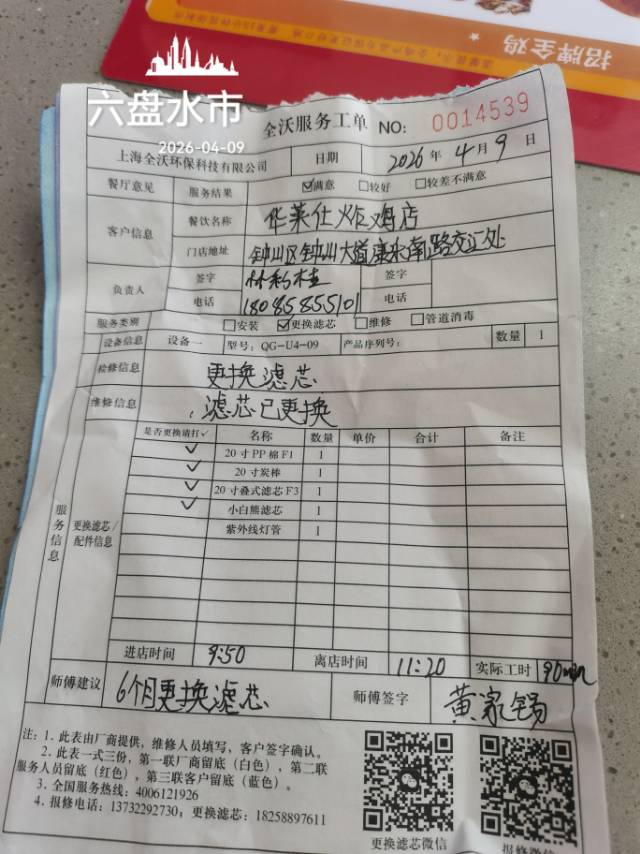 招牌金鸡
六盘水市
2026-04-09
全沃服务工单 NO: 0014539
上海全沃环保科技有限公司 日期 2026年4月9日
餐厅意见 服务结果 ☑满意 □较好 □较差不满意
客户信息 餐饮名称 华莱仕炸鸡店
门店地址 钟山区钟山大道康乐南路交汇处
负责人 签字 签字
电话 18085855101 电话
服务类别 □安装 ☑更换滤芯 □维修 □管道消毒
设备信息 设备一 型号: QG-U4-09 产品序列号: 数量 1
检修信息 更换滤芯
维修信息 滤芯已更换
服务信息 更换滤芯/配件信息 是否更换请打✓ 名称 数量 单价 合计 备注
✓ 20寸PP棉F1 1
✓ 20寸炭棒 1
✓ 20寸叠式滤芯F3 1
✓ 小白熊滤芯 1
紫外线灯管 1
进店时间 9:50 离店时间 11:20 实际工时 90min
师傅建议 6个月更换滤芯 师傅签字 黄家锡
注: 1. 此表由厂商提供,维修人员填写,客户签字确认。
2. 此表一式三份,第一联厂商留底(白色),第二联
服务人员留底(红色),第三联客户留底(蓝色)。
3. 全国服务热线: 4006121926
4. 报修电话: 13732292730; 更换滤芯: 18258897611
更换滤芯微信 报修微信